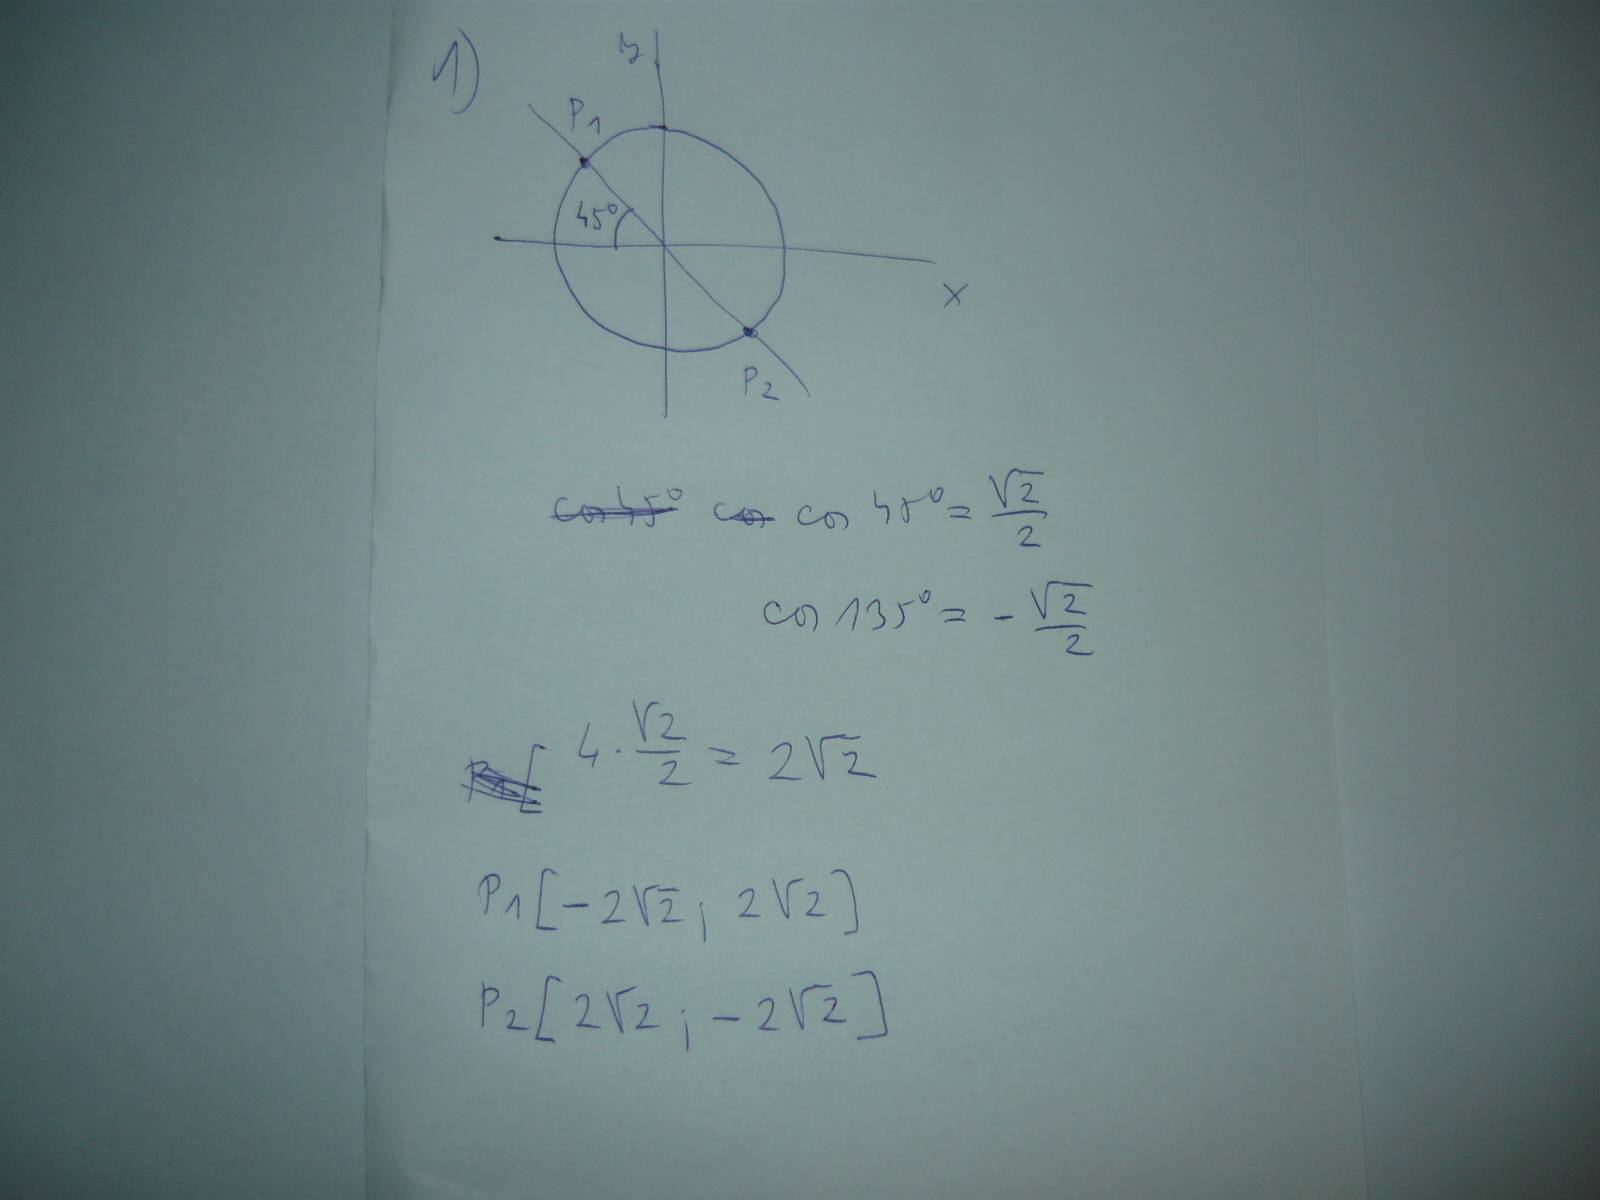 1)
y
P1
45°
x
P2
cos 45° = √2/2
cos 135° = - √2/2
4 · √2/2 = 2√2
P1 [-2√2 ; 2√2]
P2 [2√2 ; -2√2]